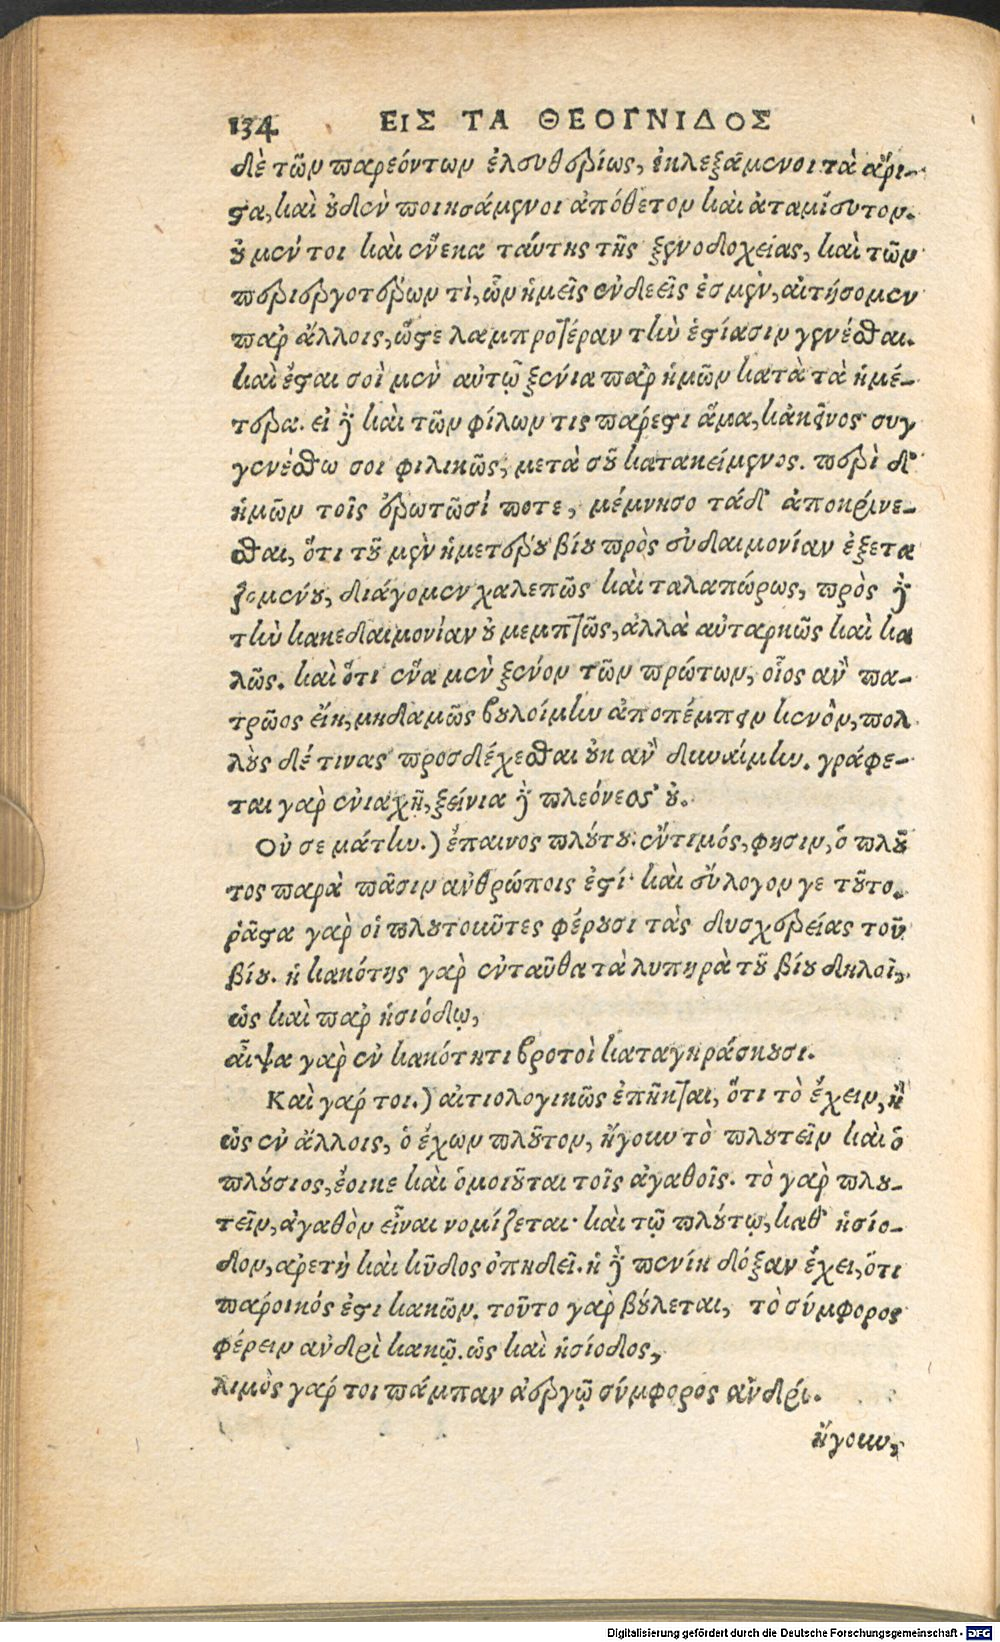 134 ΕΙΣ ΤΑ ΘΕΟΓΝΙΔΟΣ
δὲ τῶν παρεόντων ἐλευθερίως, ἐκλεξάμενοι τὰ ἄρι-
στα, καὶ οὐδὲν ποιησάμενοι ἀπόθετον καὶ ἀταμίευτον.
οὐ μέν τοι καὶ ἕνεκα ταύτης τῆς ξενοδοχείας, καὶ τῶν
περιεργοτέρων τὶ, ὧν ἡμεῖς ἐνδεεῖς ἐσμὲν, αἰτήσομεν
παρ ἄλλοις, ὥστε λαμπροτέραν τὴν ἑστίασιν γενέσθαι.
καὶ ἔσται σοὶ μὲν αὐτῷ ξένια παρ ἡμῶν κατὰ τὰ ἡμέ-
τερα. εἰ δὲ καὶ τῶν φίλων τις πάρεστι ἅμα, κἀκεῖνος συγ
γενέσθω σοι φιλικῶς, μετὰ σοῦ κατακείμενος. περὶ δ'
ἡμῶν τοῖς ἐρωτῶσί ποτε, μέμνησο τάδ' ἀποκρίνε-
σθαι, ὅτι τοῦ μὲν ἡμετέρου βίου πρὸς εὐδαιμονίαν ἐξετα
ζομένου, διάγομεν χαλεπῶς καὶ ταλαπώρως, πρὸς δὲ
τὴν κακεδαιμονίαν οὐ μεμπτῶς, ἀλλὰ αὐταρκῶς καὶ κα
λῶς. καὶ ὅτι ἕνα μὲν ξένον τῶν πρώτων, οἷος ἂν πα-
τρῶος εἴη, μηδαμῶς βουλοίμην ἀποπέμπειν κενὸν, πολ
λοὺς δέ τινας προσδέχεσθαι οὐκ ἂν δυναίμην. γράφε-
ται γὰρ ἐνιαχῆ, ξείνια δὲ πλεόνεσσ' οὐ.
Οὐ σε μάτην.) ἔπαινος πλούτου. ἔντιμός, φησιν, ὁ πλοῦ
τος παρὰ πᾶσιν ἀνθρώποις ἐστί· καὶ εὔλογον γε τοῦτο.
ῥᾶστα γὰρ οἱ πλουτοῦντες φέρουσι τὰς δυσχερείας τοῦ
βίου. ἡ κακότης γὰρ ἐνταῦθα τὰ λυπηρὰ τοῦ βίου δηλοῖ,
ὡς καὶ παρ ἡσιόδῳ,
αἶψα γὰρ ἐν κακότητι βροτοὶ καταγηράσκουσι.
Καὶ γάρ τοι.) αἰτιολογικῶς ἐπῆκται, ὅτι τὸ ἔχειν, ἢ
ὡς ἐν ἄλλοις, ὁ ἔχων πλοῦτον, ἤγουν τὸ πλουτεῖν καὶ ὁ
πλούσιος, ἔοικε καὶ ὁμοιοῦται τοῖς ἀγαθοῖς. τὸ γὰρ πλου-
τεῖν, ἀγαθὸν εἶναι νομίζεται· καὶ τῷ πλούτῳ, καθ' ἡσίο-
δον, ἀρετὴ καὶ κῦδος ὀπηδεῖ. ἡ δὲ πενίη δόξαν ἔχει, ὅτι
πάροικός ἐστι κακῶν. τοῦτο γὰρ βούλεται, τὸ σύμφορος
φέρειν ἀνδρὶ κακῷ. ὡς καὶ ἡσίοδος,
λιμὸς γάρ τοι πάμπαν ἀεργῷ σύμφορος ἀνδρί.
ἤγουν,
Digitalisierung gefördert durch die Deutsche Forschungsgemeinschaft - DFG